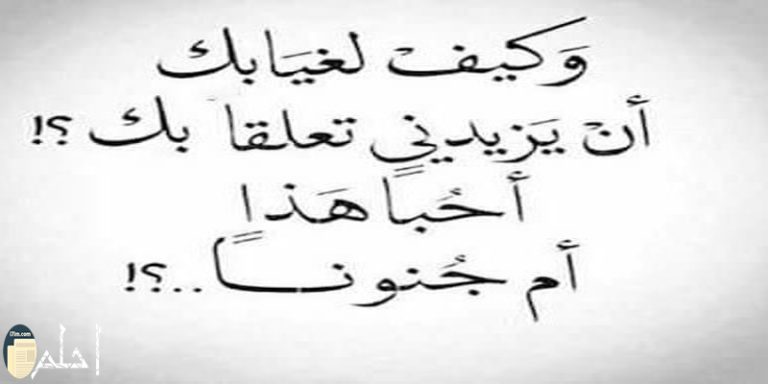 وَكيفْ لغيَابك
أنْ يَزيدني تعلقا بك ؟!
أحُباً هَذا
أم جُنونـــاً..؟!
احلم